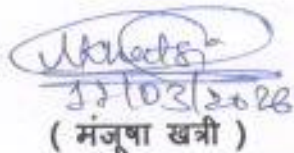 17/03/2026
( मंजूषा खत्री )